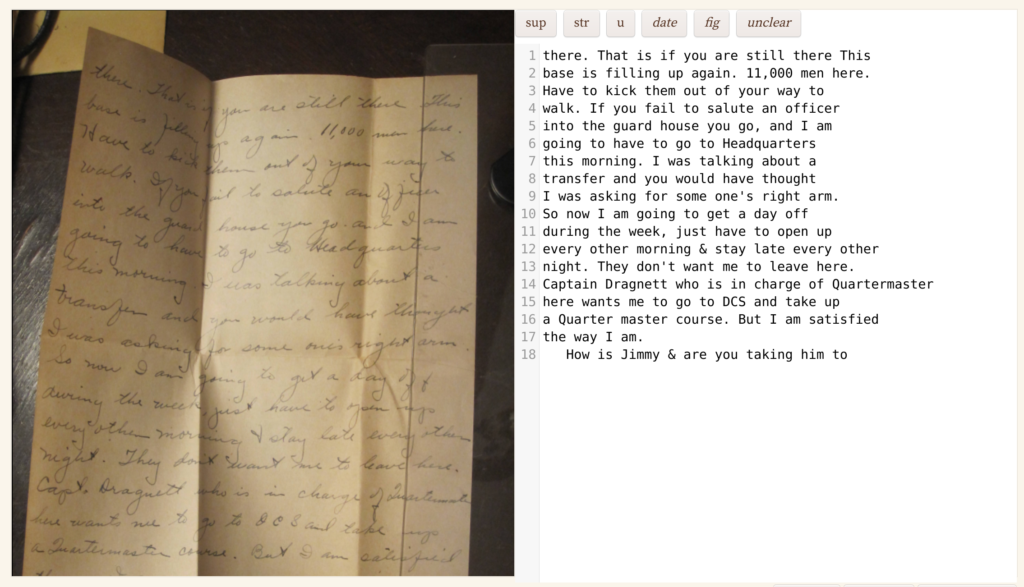 sup str u date fig unclear
there. That is if you are still there This
base is filling up again. 11,000 men here.
Have to kick them out of your way to
walk. If you fail to salute an officer
into the guard house you go. and I am
going to have to go to Headquarters
this morning. I was talking about a
transfer and you would have thought
I was asking for some ones right arm.
So now I am going to get a day off
during the week, just have to open up
every other morning & stay late every other
night. They don't want me to leave here.
Capt. Dragnett who is in charge of Quartermaster
here wants me to go to OCS and take up
a Quartermaster course. But I am satisfied
1 there. That is if you are still there This
2 base is filling up again. 11,000 men here.
3 Have to kick them out of your way to
4 walk. If you fail to salute an officer
5 into the guard house you go, and I am
6 going to have to go to Headquarters
7 this morning. I was talking about a
8 transfer and you would have thought
9 I was asking for some one's right arm.
10 So now I am going to get a day off
11 during the week, just have to open up
12 every other morning & stay late every other
13 night. They don't want me to leave here.
14 Captain Dragnett who is in charge of Quartermaster
15 here wants me to go to DCS and take up
16 a Quarter master course. But I am satisfied
17 the way I am.
18 How is Jimmy & are you taking him to